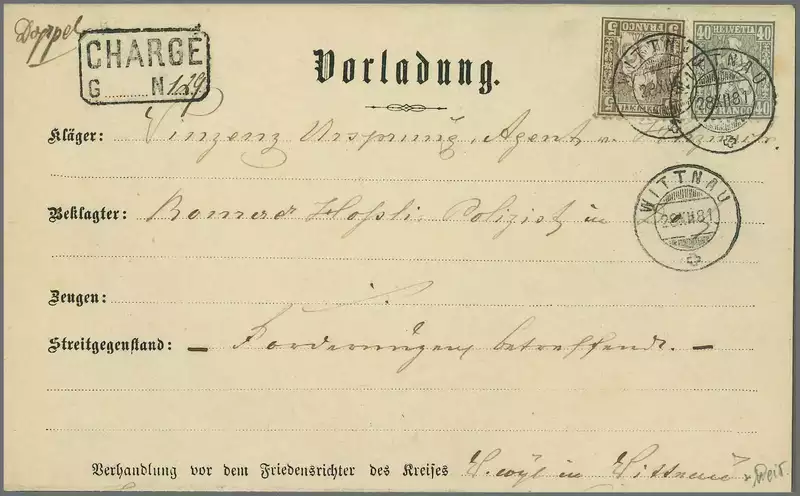 Doppel
CHARGÉ
G N 129
Vorladung.
5 FRANCO 5
40 HELVETIA 40
40 FRANCO 40
WITTNAU
28 XII 81
WITTNAU
28 XII 81
Kläger: Vinzenz Ursprung, Agent v.
Beklagter: Hoßli, Polizist in
WITTNAU
28 XII 81
Zeugen:
Streitgegenstand: – Forderung betreffend. –
Verhandlung vor dem Friedensrichter des Kreises in Wittnau